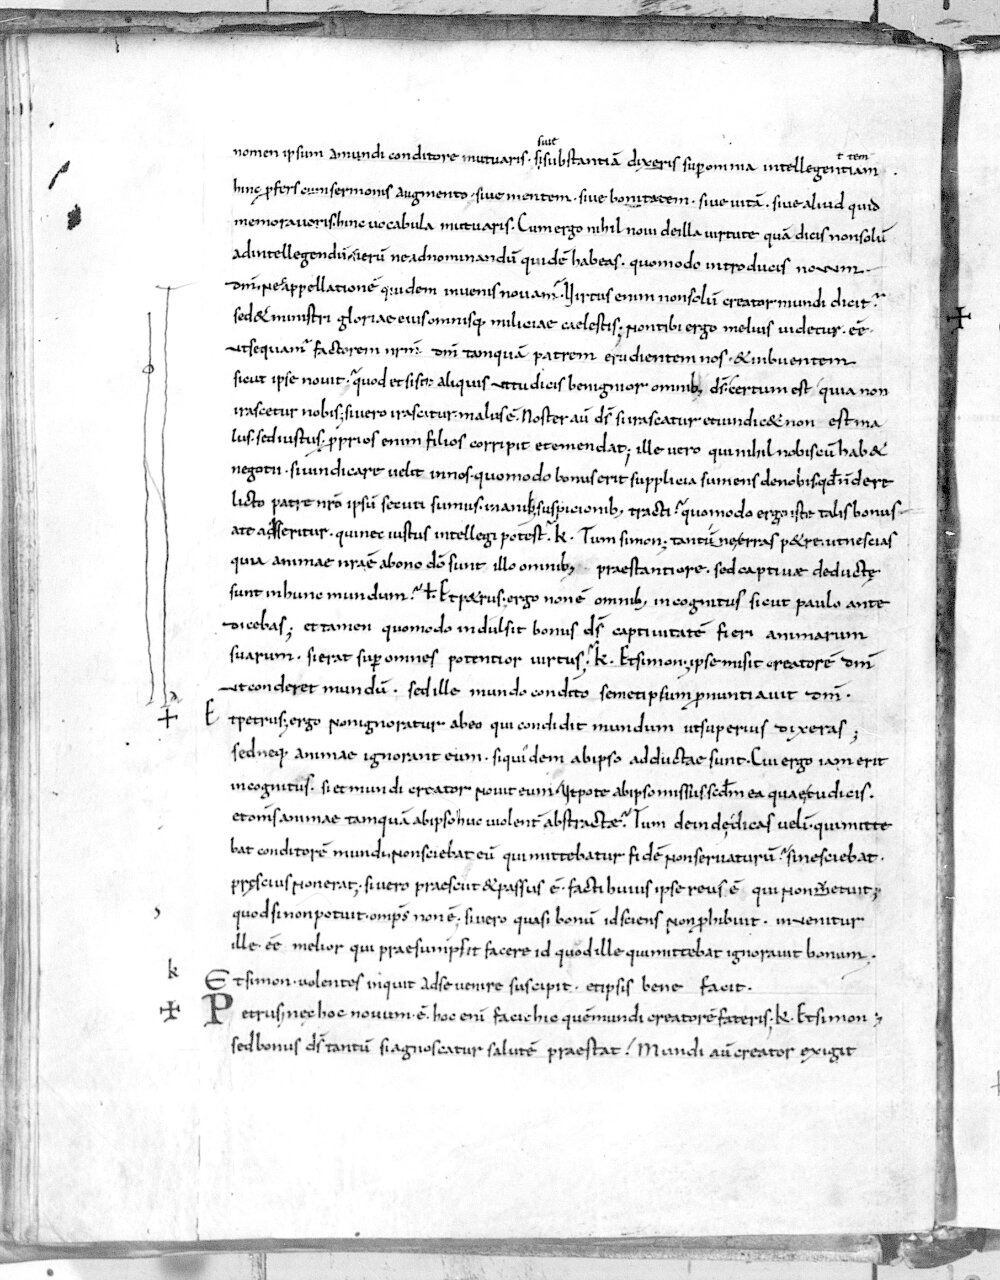 siue
nomen ipsum amundi conditore mutuaris · sisubstantiā dixeris sup omnia intellegentiam ·
hinc ꝓfers cumsermonis augmento · siue mentem · siue bonitatem · siue uitā · siue aliud quid
memoraueris hinc uocabula mutuaris · Cum ergo nihil noui deilla uirtute quā dicis nonsolū
adintellegendū uerū neadnominandū quidē habeas · quomodo introducis nouum
dm̄ · neappellationē quidem inuenis nouam ; Virtus enim nonsolū creator mundi dicit᷑
sed & ministri gloriae eius omnisq; miliciae caelestis ; Nontibi ergo melius uidetur · ee
utsequam᷑ factorem nrm̄ dm̄ tamquā patrem erudientem nos · & inbuentem
sicut ipse nouit · quod et si sit aliquis uttu dicis benignior omnib; ds̄ · certum est quia non
irascetur nobis ; siuero irascitur · malus ē · Noster au ds̄ si irascatur et uindic& non est ma
lus · sed iustus ; ꝓprios enim filios corripit et emendat ; ille uero qui nihil nobiscū hab&
negotii · si uindicare uelit innos · quomodo bonus erit supplicia sumens denobis qd̄ n̄ dere
licto patre nrō ipsū secuti sumus · inanib; suspicionib; tracti · quomodo ergo iste talis bonus
ate asseritur · qui nec iustus intellegi potest · k · Tum simon ; tantū ne erras p&re · utnescias
quia animae nrae abono dō sunt illo omnib; praestantiore · sed captiuae deductę
sunt in hunc mundum · Et p&rus ; ergo non ē omnib; incognitus sicut paulo ante
dicebas ; et tamen quomodo indulsit bonus ds̄ captiuitatē fieri animarum
suarum · si erat sup omnes potentior uirtus ; k · Et simon ; ipse misit creatorē dm̄
ut conderet mundū · sed ille mundo condito semetipsum ꝓnuntiauit dm̄ ·
Et petrus ; ergo nonignoratur abeo qui condidit mundum utsuperius dixeras ;
sed neq; animae ignorant eum · siquidem abipso adductae sunt · Cui ergo iam erit
incognitus · si et mundi creator nouit eum utpote abipso missus scdm̄ ea quae tu dicis ·
et om̄s animae tamquā abipso huc uiolent᷑ abstractae · Tum deinde dicas uelī · qui mitte
bat conditorē mundi nonsciebat eū qui mittebatur fidē nonseruaturū · si nesciebat ·
pręscius non erat ; siuero praesciit & passus ē · facti huius ipse reus ē qui non uetuit ;
quod si non potuit · omps̄ non ē ; siuero quasi bonū id sciens non ꝓhibuit · inuenitur
ille · ee melior qui praesumpsit facere id quod ille qui mittebat ignorauit bonum ·
k
Et simon · uolentes inquit adse uenire suscipit · et ipsis bene facit ·
Petrus ; nec hoc nouum · ē · hoc enī facit hic quē mundi creatorē fateris ; k · Et simon ;
sed bonus ds̄ tantū si agnoscatur salutē praestat · Mundi aū creator exigit